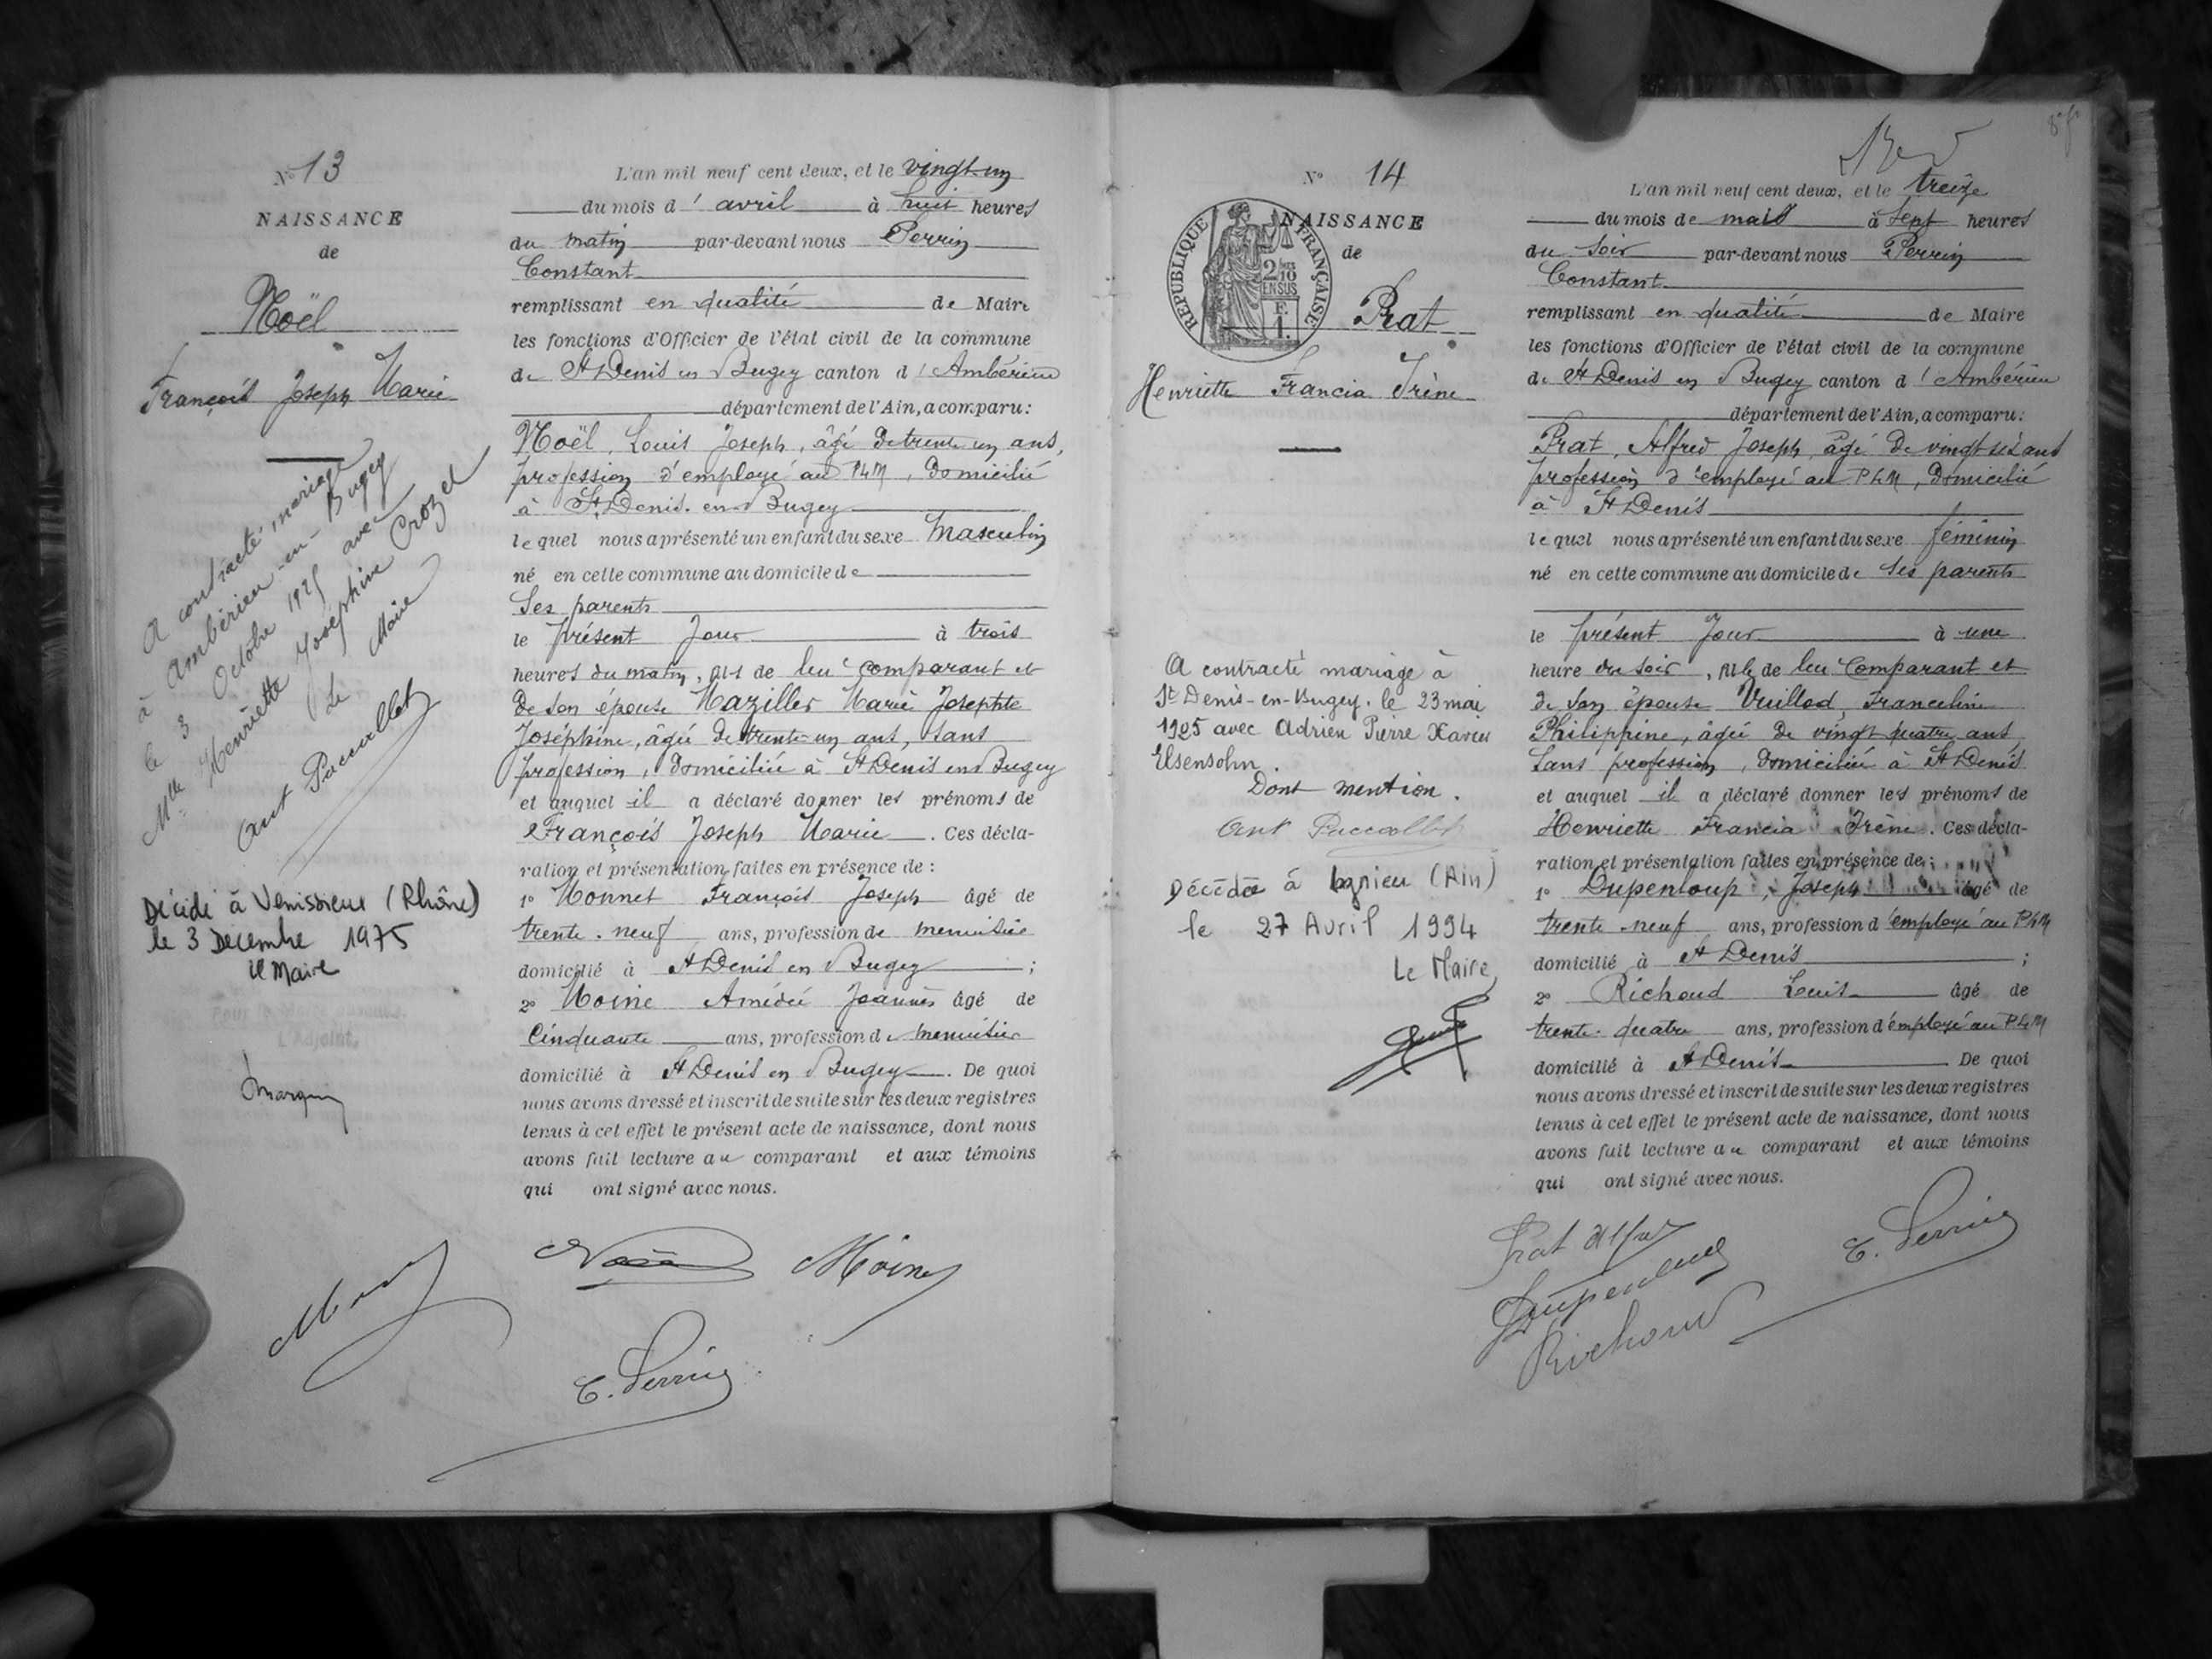 N° 13
NAISSANCE
de
Noël
François Joseph Marie
A contracté mariage
à Ambérieu-en-Bugey
le 3 Octobre 1925 avec
Mlle Henriette Joséphine Crozel
Le Maire
Ant Paccallet
Décidé à Venissieux (Rhône)
le 3 Decembre 1975
le Maire
L'Adjoint,
L'an mil neuf cent deux, et le vingt-un
du mois d'avril à huit heures
du matin par-devant nous Perrin
Constant
remplissant en qualité de Maire
les fonctions d'Officier de l'état civil de la commune
de St Denis en Bugey canton d'Ambérieu
département de l'Ain, a comparu:
Noël, Louis Joseph, âgé de trente un ans,
profession d'employé au PLM, domicilié
à St Denis en Bugey
lequel nous a présenté un enfant du sexe masculin
né en cette commune au domicile de
Ses parents
le présent jour à trois
heures du matin, fils de lui comparant et
de son épouse Maziller Marie Josephte
Joséphine, âgée de trente-un ans, sans
profession, domiciliée à St Denis en Bugey
et auquel il a déclaré donner les prénoms de
François Joseph Marie. Ces décla-
ration et présentation faites en présence de :
1° Monnet François Joseph âgé de
trente-neuf ans, profession de menuisier
domicilié à St Denis en Bugey ;
2° Moine Amédée Joannès âgé de
Cinquante ans, profession de menuisier
domicilié à St Denis en Bugey. De quoi
nous avons dressé et inscrit de suite sur les deux registres
tenus à cet effet le présent acte de naissance, dont nous
avons fait lecture au comparant et aux témoins
qui ont signé avec nous.
Noël Moine
C. Perrin
N° 14
NAISSANCE
de
RÉPUBLIQUE FRANÇAISE
2/10
EN SUS
Prat
Henriette Francia Irène
A contracté mariage à
St Denis-en-Bugey, le 23 mai
1925 avec Adrien Pierre Xavier
Elsensohn.
Dont mention.
Ant Paccallet
Décédée à Lagnieu (Ain)
le 27 Avril 1994
Le Maire
L'an mil neuf cent deux, et le treize
du mois de mai à sept heures
du soir par-devant nous Perrin
Constant
remplissant en qualité de Maire
les fonctions d'Officier de l'état civil de la commune
de St Denis en Bugey canton d'Ambérieu
département de l'Ain, a comparu:
Prat, Alfred Joseph, âgé de vingt six ans
profession d'employé au PLM, domicilié
à St Denis
lequel nous a présenté un enfant du sexe féminin
né en cette commune au domicile de ses parents
le présent jour à une
heure du soir, fille de lui comparant et
de son épouse Vuillod, Franceline
Philippine, âgée de vingt quatre ans
Sans profession, domiciliée à St Denis
et auquel il a déclaré donner les prénoms de
Henriette Francia Irène. Ces décla-
ration et présentation faites en présence de :
1° Dupenloup, Joseph âgé de
trente-neuf ans, profession d'employé au PLM
domicilié à St Denis ;
2° Richoud Louis âgé de
trente-quatre ans, profession d'employé au PLM
domicilié à St Denis De quoi
nous avons dressé et inscrit de suite sur les deux registres
tenus à cet effet le présent acte de naissance, dont nous
avons fait lecture au comparant et aux témoins
qui ont signé avec nous.
Prat Alfred
Dupenloup
Richoud
C. Perrin